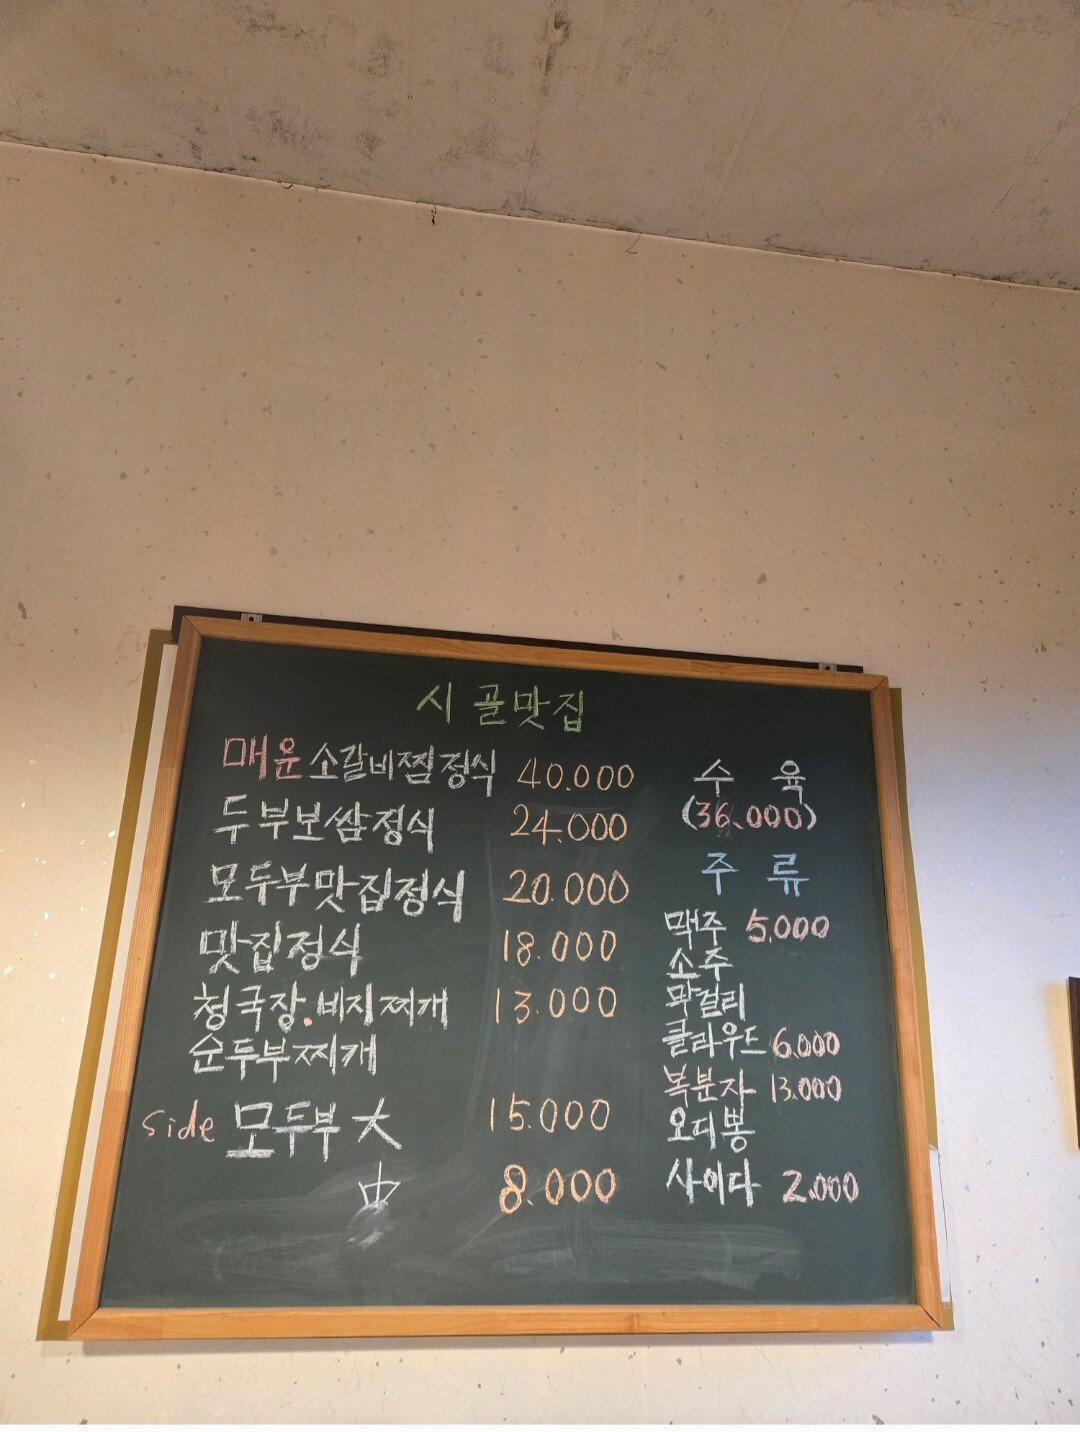 시골맛집
매운 소갈비찜정식 40.000
두부보쌈정식 24.000
모두부맛집정식 20.000
맛집정식 18.000
청국장.비지찌개 13.000
순두부찌개
side 모두부 大 15.000
中 8.000
수육
(36.000)
주류
맥주 5,000
소주
막걸리
클라우드 6.000
복분자 13.000
오디뽕
사이다 2.000